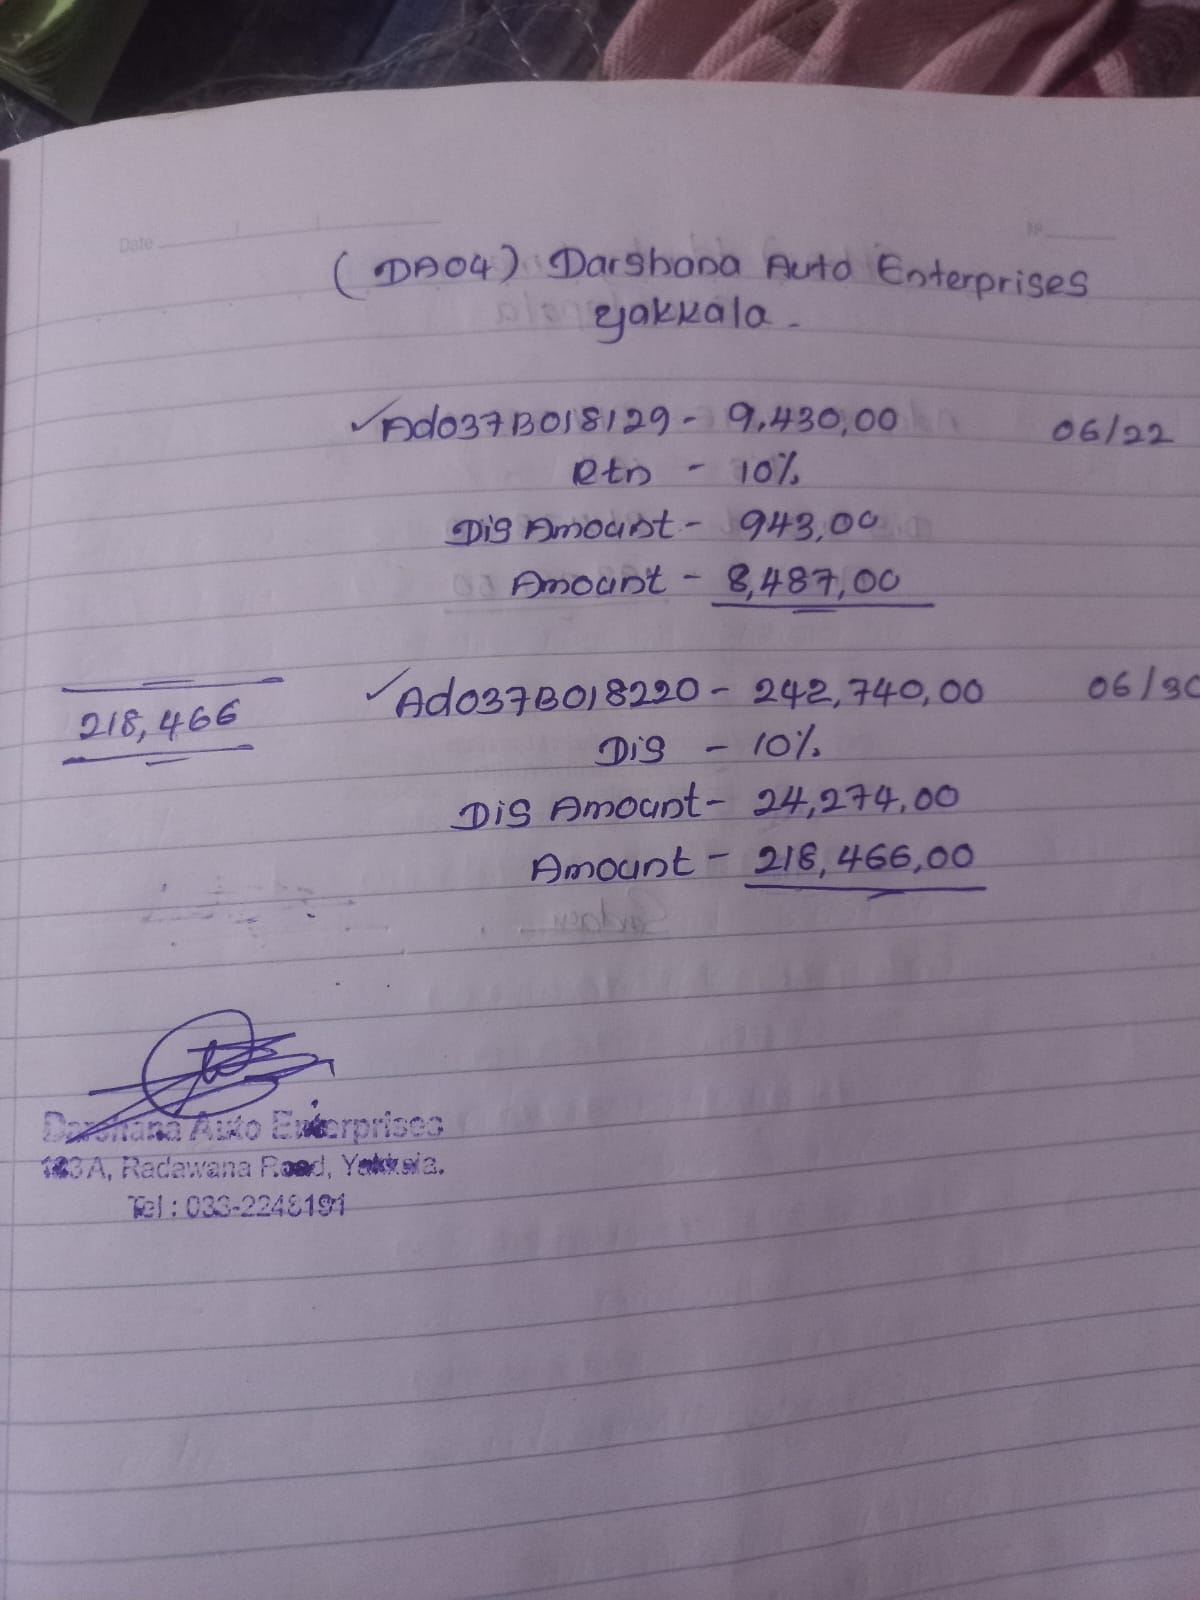 Date
Nº
(DA04) Darshana Auto Enterprises
Yakkala -
✓Ad037B018129 - 9,430,00 06/22
Rtn - 10%
Dis Amount - 943,00
Amount - 8,487,00
218,466
✓Ad037B018220 - 242,740,00 06/30
Dis - 10%
Dis Amount - 24,274,00
Amount - 218,466,00
Darshana Auto Enterprises
Radawana Road, Yakkala.
Tel : 033-2248191